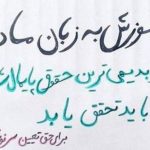 موزش به زبان ماد
بدیهی ترین حقوق پایمال
باید تحقق یابد
برای حق تعیین سرنو